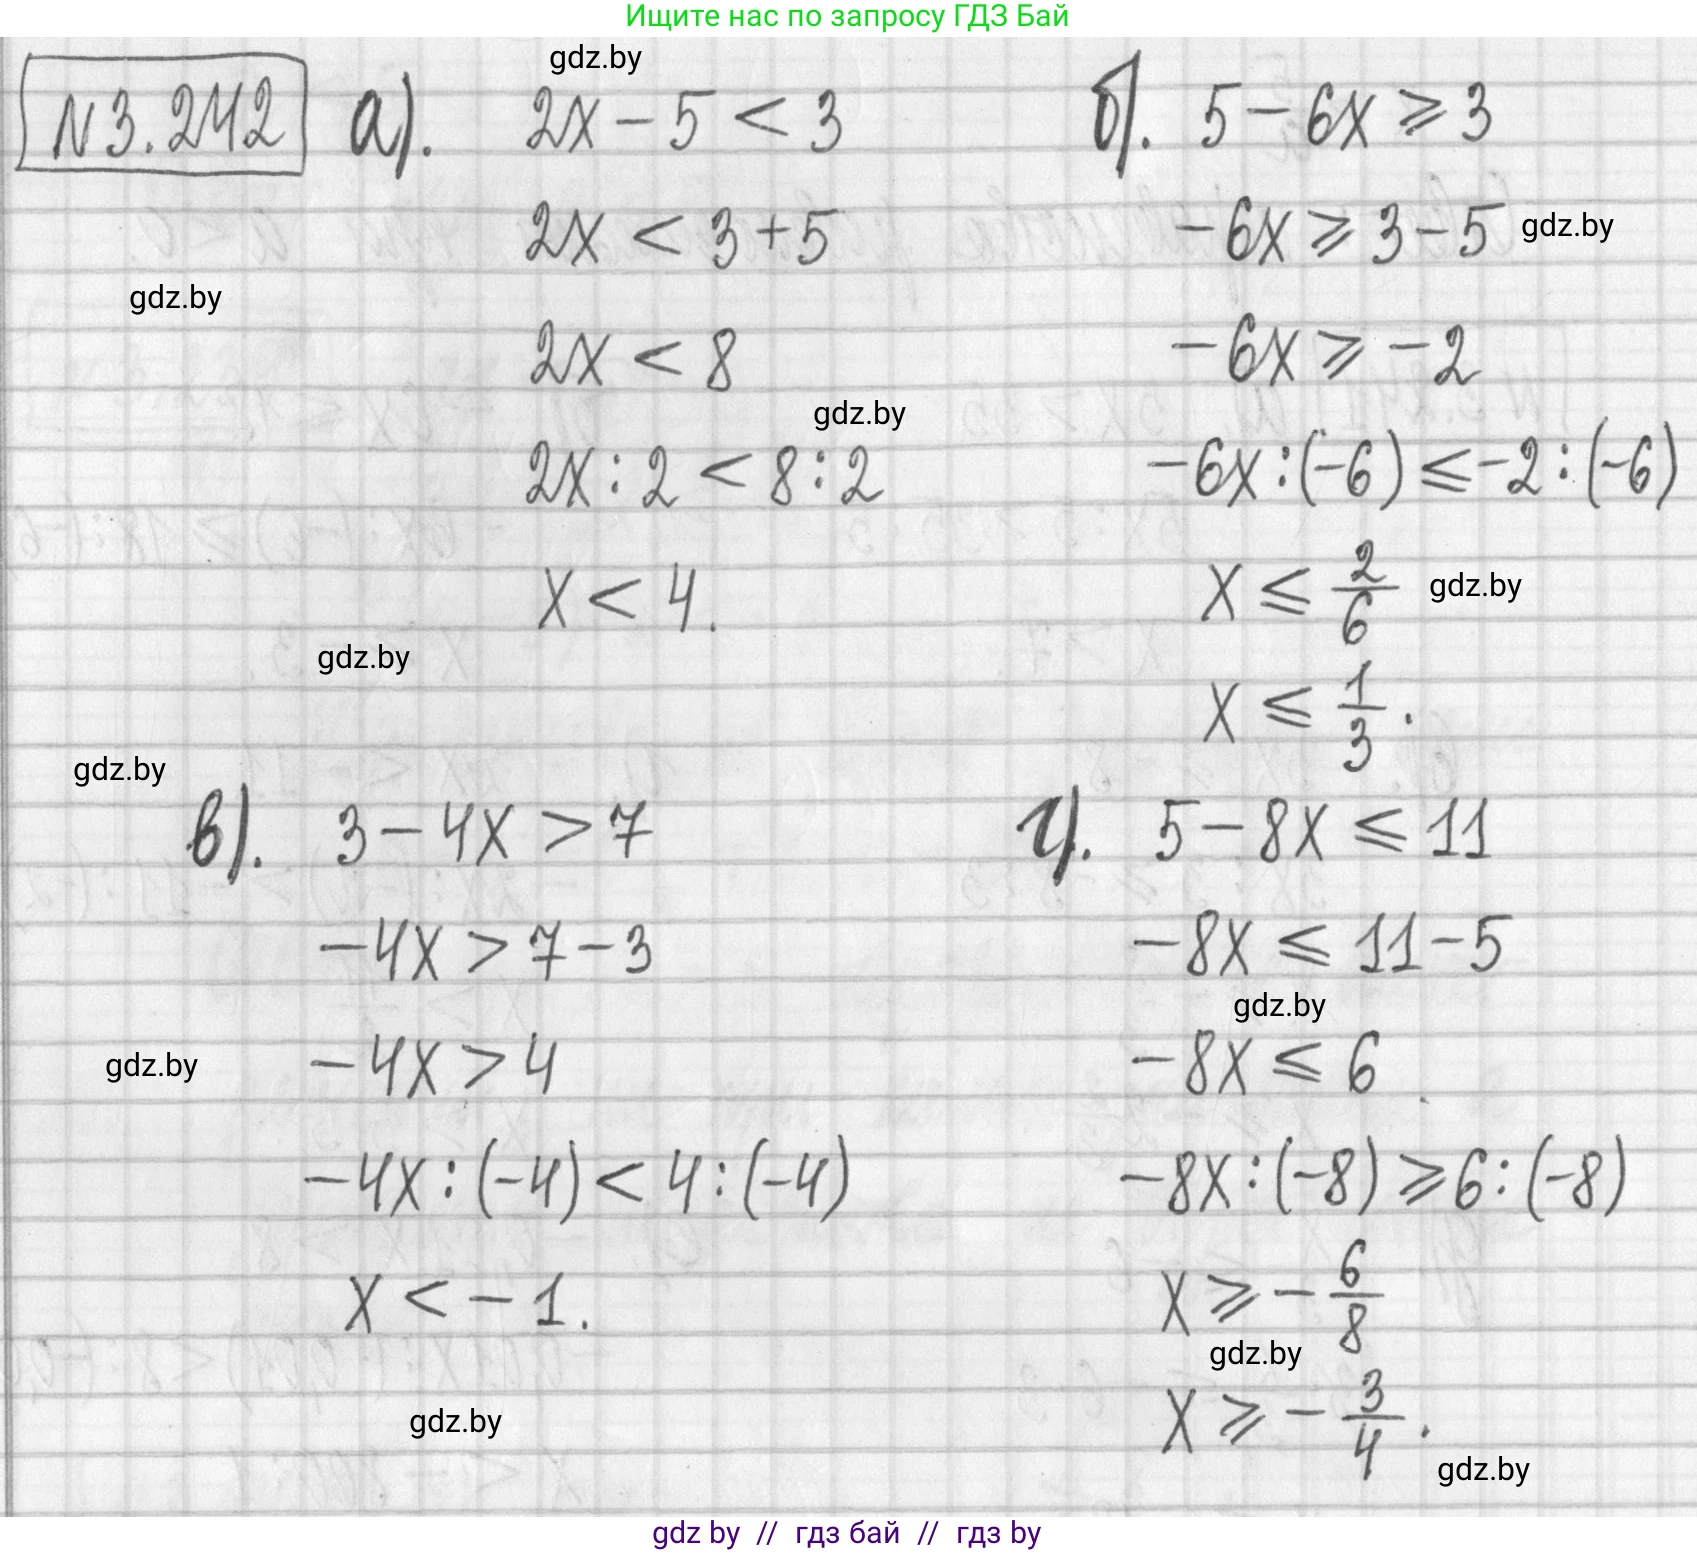 Ищите нас по запросу ГДЗ Бай
gdz.by
N3.242
а). 2x - 5 < 3
2x < 3 + 5
gdz.by
2x < 8
gdz.by
2x : 2 < 8 : 2
x < 4.
gdz.by
б). 5 - 6x ⩾ 3
-6x ⩾ 3 - 5
gdz.by
-6x ⩾ -2
-6x : (-6) ⩽ -2 : (-6)
x ⩽ 2/6
gdz.by
x ⩽ 1/3.
gdz.by
в). 3 - 4x > 7
-4x > 7 - 3
-4x > 4
gdz.by
-4x : (-4) < 4 : (-4)
x < -1.
gdz.by
г). 5 - 8x ⩽ 11
-8x ⩽ 11 - 5
gdz.by
-8x ⩽ 6
-8x : (-8) ⩾ 6 : (-8)
x ⩾ - 6/8
gdz.by
x ⩾ - 3/4.
gdz.by
gdz by // гдз бай // гдз by